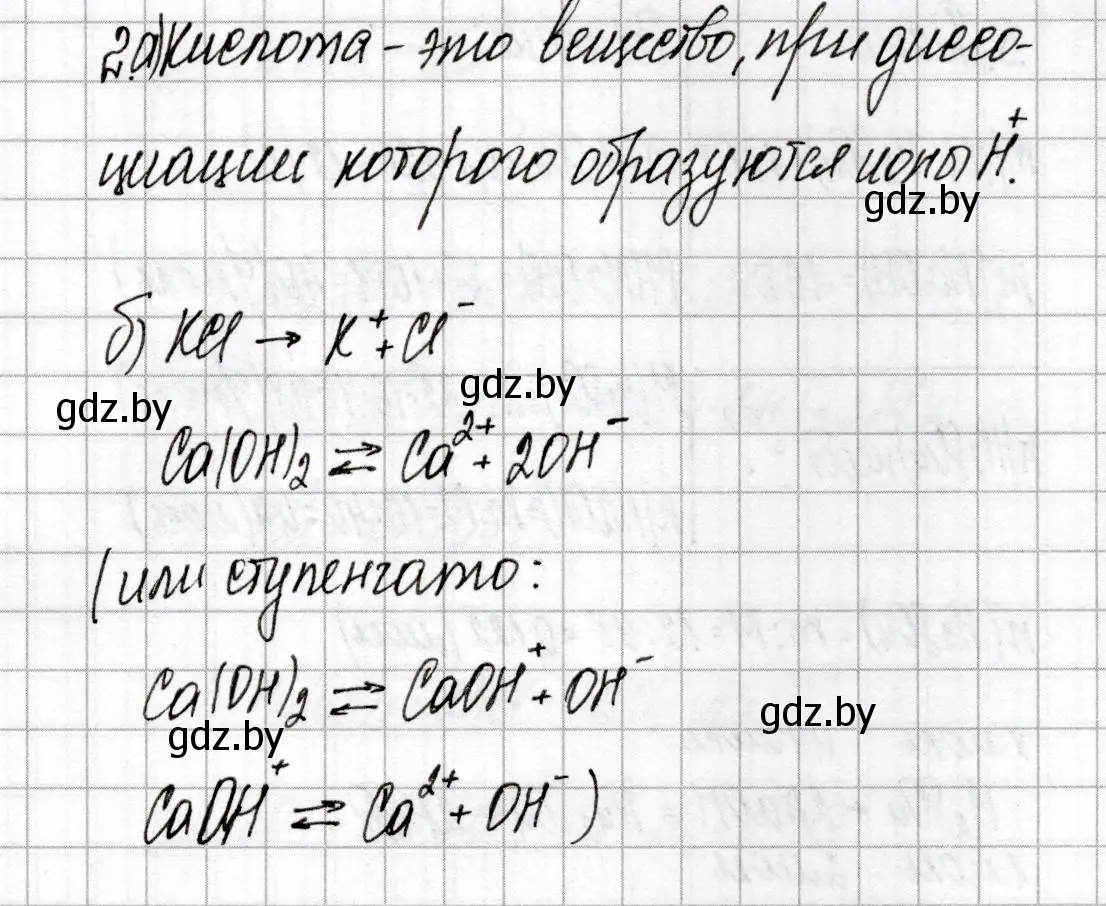 2.а) Кислота - это вещество, при диссо-
циации которого образуются ионы H⁺.
gdz.by
б) KCl → K⁺ + Cl⁻
gdz.by
gdz.by
Ca(OH)₂ ⇄ Ca²⁺ + 2OH⁻
(или ступенчато:
Ca(OH)₂ ⇄ CaOH⁺ + OH⁻
gdz.by
gdz.by
CaOH⁺ ⇄ Ca²⁺ + OH⁻)